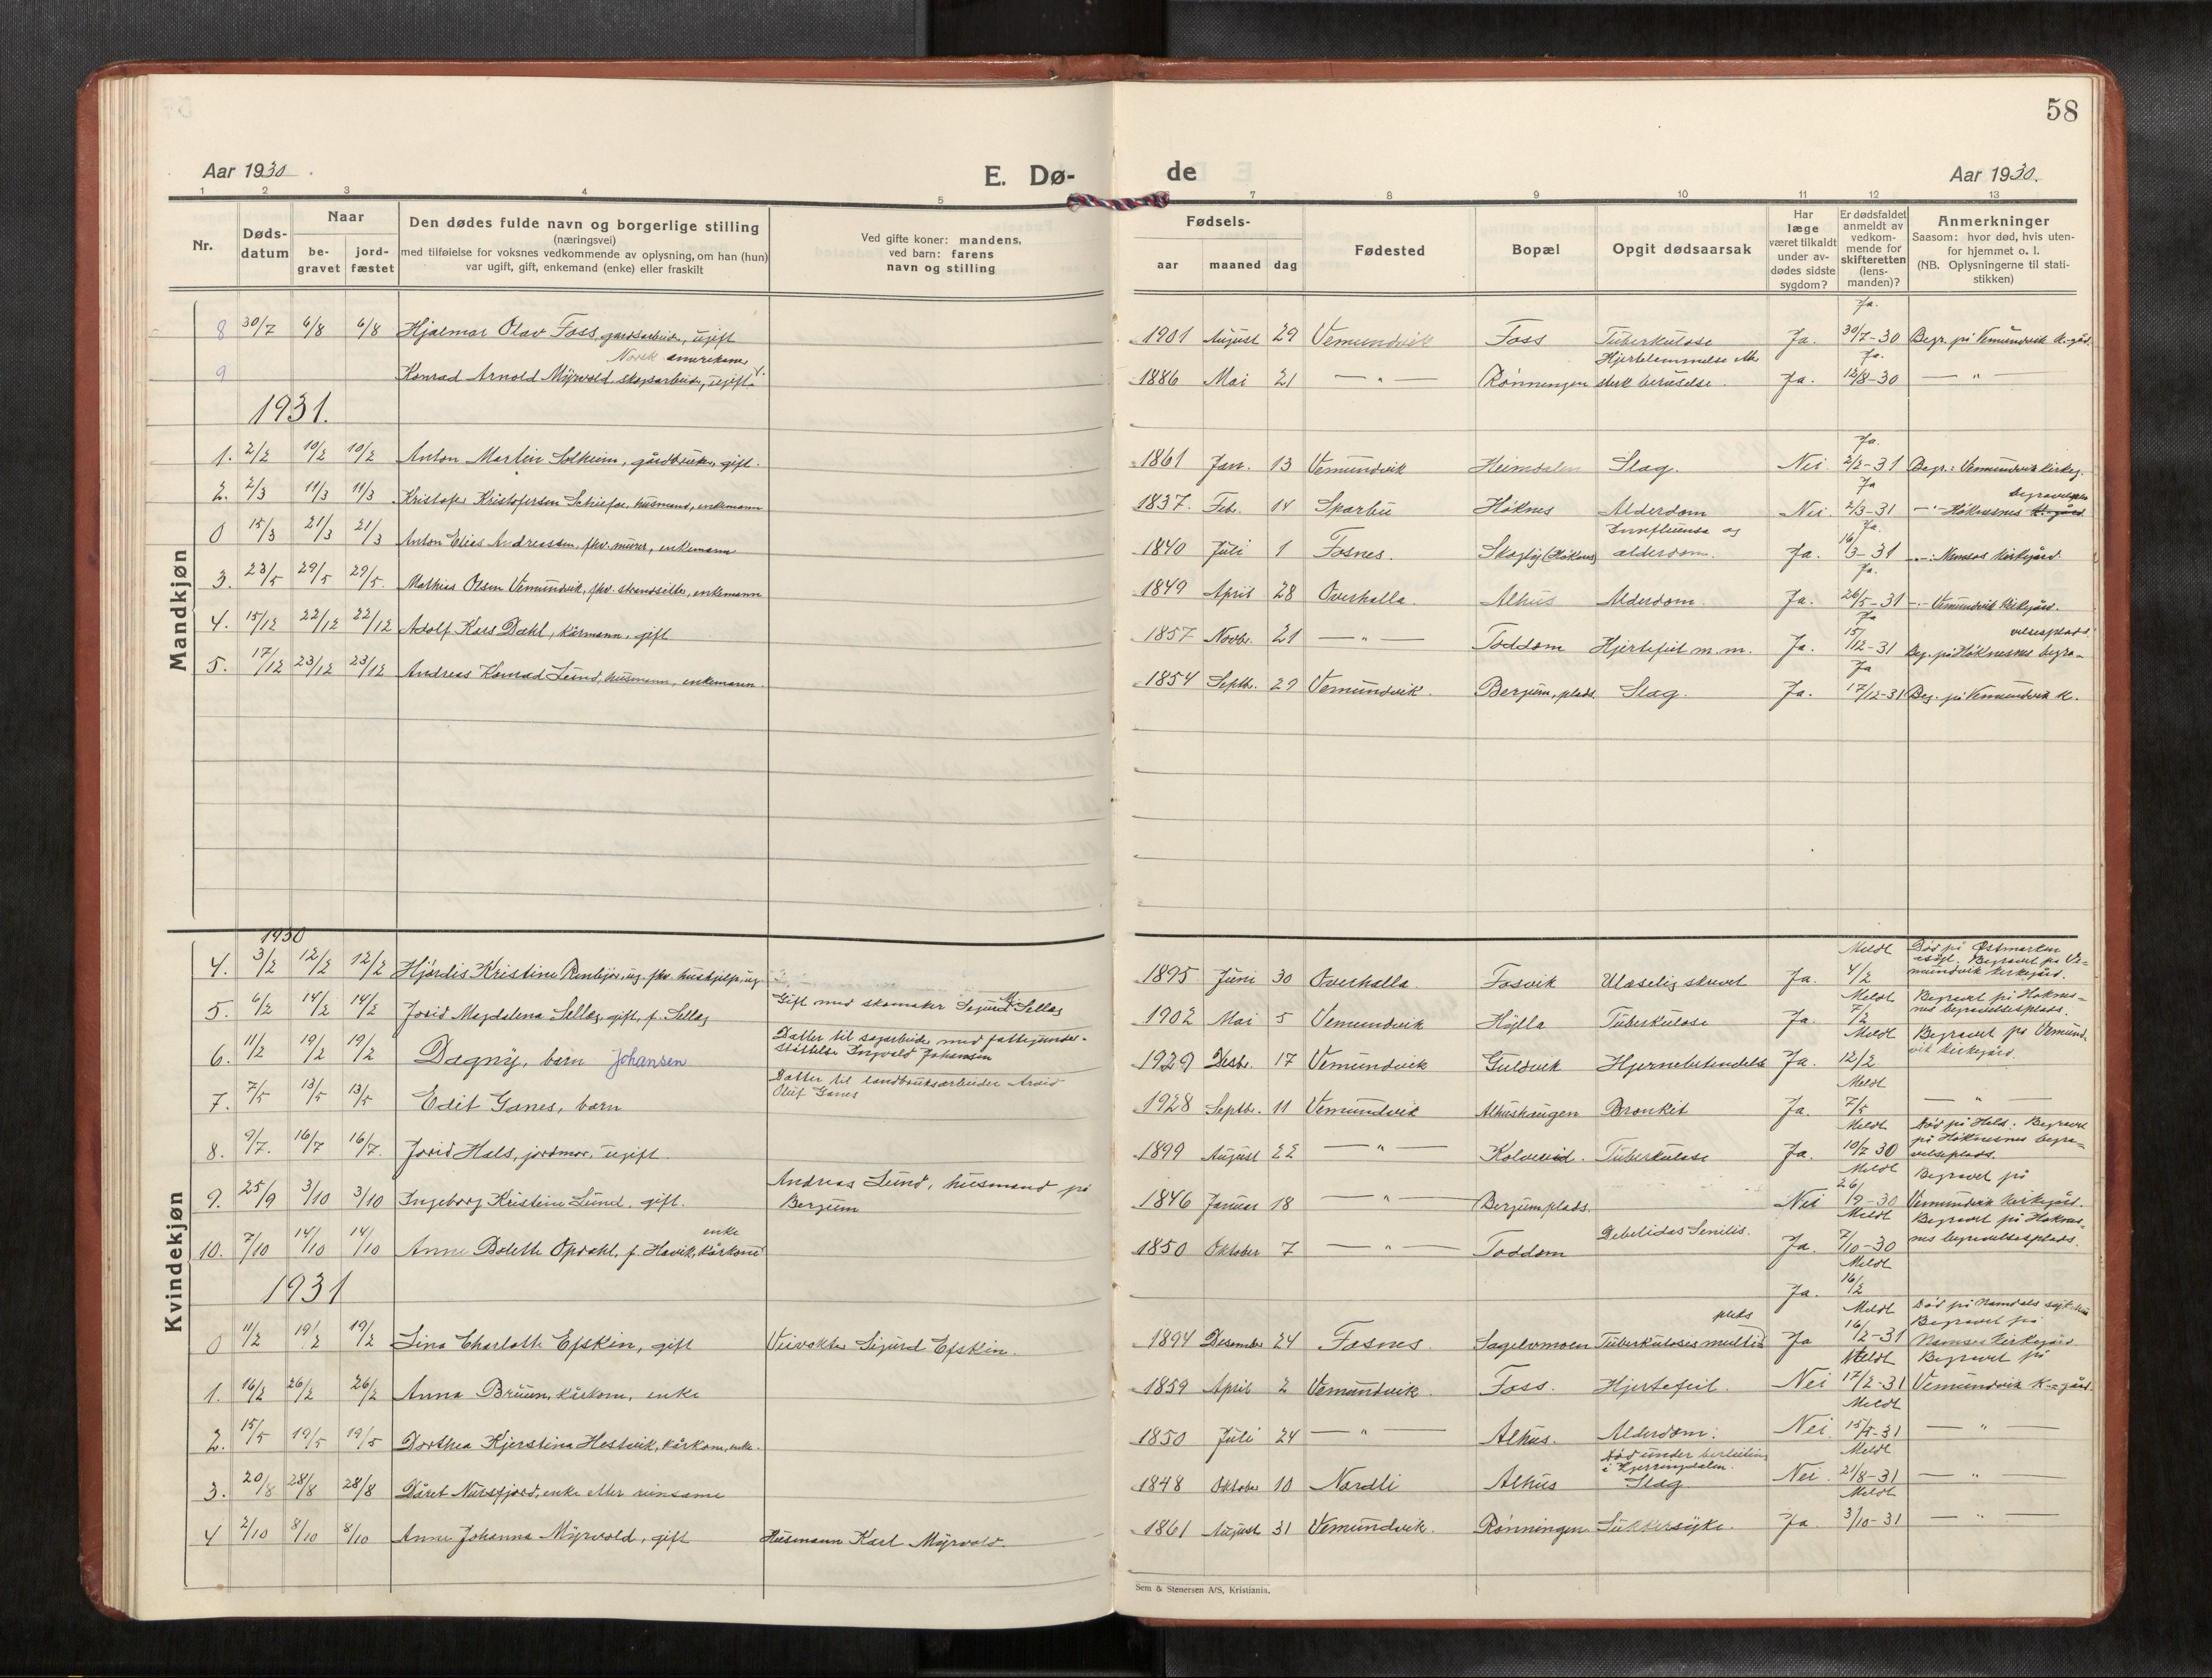 58
Aar 1930
E. Dø-
de
Aar 1930.
1 2 3 4 5 7 8 9 10 11 12 13
Nr.
Døds-
datum
Naar
be-
gravet
jord-
fæstet
Den dødes fulde navn og borgerlige stilling
(næringsvei)
med tilføielse for voksnes vedkommende av oplysning, om han (hun)
var ugift, gift, enkemand (enke) eller fraskilt
Ved gifte koner: mandens,
ved barn: farens
navn og stilling
Fødsels-
aar maaned dag
Fødested
Bopæl
Opgit dødsaarsak
Har
læge
været tilkaldt
under av-
dødes sidste
sygdom?
Er dødsfaldet
anmeldt av
vedkom-
mende for
skifteretten
(lens-
manden)?
Anmerkninger
Saasom: hvor død, hvis uten-
for hjemmet o. l.
(NB. Oplysningerne til stati-
stikken)
Mandkjøn
8 30/7 6/8 6/8 Hjalmar Olav Foss, gaardsarbeider, ugift 1901 August 29 Vemundvik Foss Tuberkulose Ja. Ja. 30/7-30 Begr. på Vemundvik K-gård.
Norsk amerikaner
9 Konrad Arnold Myrvold, skogsarbeider, ugift 1886 Mai 21 — " — Rønningen Hjertelammelse etter sterk beruselse. Ja. Ja. 12/8-30 — " —
1931.
1. 2/2 10/2 10/2 Anton Martin Solheim, gårdbruker, gift. 1861 Jan. 13 Vemundvik Heimdalen Slag. Nei Ja. 2/2-31 Begr.: Vemundvik kirkeg.
2. 2/3 11/3 11/3 Kristofer Kristofersen husmand, enkemann 1837. Feb. 14 Sparbu Høknes Alderdom Nei. Ja 2/3-31 Høknesnes begravelsespl.
0 15/3 21/3 21/3 Anton Elias Andreassen, fhv. murer, enkemann 1840 Juli 1 Fosnes. Skogly (Høknes) Innfluensa og alderdom. Ja. Ja. 16/3-31 Namsos kirkegård.
3. 23/5 29/5 29/5. Mathias Olsen Vemundvik, fhv. strandsitter, enkemann 1849 April 28 Overhalla. Alhus Alderdom. Ja. Ja. 26/5-31 Vemundvik kirkegård.
4. 15/12 22/12 22/12 Adolf Kars Dahl, kårmann, gift 1857 Novbr. 21 — " — Toddom Hjertefeil m.m. Ja. Ja 15/12-31 Beg. på Høknesnes begravelsesplads.
5. 17/12 23/12 23/12 Andreas Konrad Lund, husmann, enkemann. 1854 Septb. 29 Vemundvik. Bergum, plads. Slag. Ja. Ja 17/12-31 Beg. på Vemundvik K.
Kvindekjøn
1930
4. 3/2 12/2 12/2 Hjørdis Kristine fhv. hushjelp, ug. 1895 Juni 30 Overhalla. Fosvik Ulæselig skrevet Ja. Meldt 4/2 Død på Østmarken asyl. Begravet på Vemundvik kirkegård.
5. 6/2 14/2 14/2 Jorid Magdalena Sellæg, gift, f. Sellæg Gift med skomaker Sigurd Sellæg 1902 Mai 5 Vemundvik Hylla Tuberkulose Ja. Meldt 7/2 Begravet på Høknesnes begravelsesplads.
6. 11/2 19/2 19/2 Dagny, barn Johansen Datter til sagarbeider med fattigunderstøttelse Ingvald Johansen 1929 Desbr. 17 Vemundvik Guldvik Hjernebetendelse Ja. Meldt 12/2 Begravet på Vemundvik kirkegård.
7. 7/5 13/5 13/5 Edit Ganes, barn Datter til landbruksarbeider Arvid Oluf Ganes 1928 Septbr. 11 Vemundvik Alhushaugen Bronkit Ja. Meldt 7/5 — " —
8. 9/7. 16/7 16/7. Jorid Hals, jordmor, ugift. 1899 August 22 — " — Kolvereid. Tuberkulose Ja. Meldt 10/7 30 Død på Hals. Begravet på Høknesnes begravelsesplads.
9. 25/9 3/10 3/10 Ingeborg Kristine Lund, gift. Andreas Lund, husmand på Bergum 1846 Januar 18 — " — Bergumplads. Nei Meldt 26/9-30 Begravet på Vemundvik kirkegård.
10. 7/10 14/10 14/10 Anne Bolette Opdahl, f. Havik, kårkone enke 1850 Oktober 7 — " — Toddom Debelidas Senilis. Ja. Meldt 7/10-30 Begravet på Høknesnes begravelsesplads.
1931
Ja. Meldt 16/2
0 11/2 19/2 19/2 Lina Charlotte Efskin, gift Veivokter Sigurd Efskin. 1894 Desember 24 Fosnes. Sagelvmoen Tuberkulosis multiplets Ja Meldt 16/2-31 Død på Namdals sykehus Begravet på Namsos kirkegård.
1. 16/2 26/2 26/2 Anna Bruun, kårkone, enke 1859 April 2 Vemundvik. Foss. Hjertefeil. Nei Meldt 17/2-31 Begravet på Vemundvik K-gård.
2. 15/5 19/5 19/5 Dorthea Kjerstina Hestvik, kårkone, enke. 1850 Juli 24 — " — Alhus. Alderdom. Nei. Meldt 15/5-31 — " —
3. 20/8 28/8 28/8 Dåret Nursfjord, enke etter 1848 Oktober 10 Nordli Alhus Død under i Slag Nei. Meldt 21/8-31 — " —
4 2/10 8/10 8/10 Anne Johanna Myrvold, gift Husmann Karl Myrvold. 1861 August 31 Vemundvik. Rønningen Sukkersyke. Ja. Meldt 3/10-31 — " —
Sem & Stenersen A/S, Kristiania.